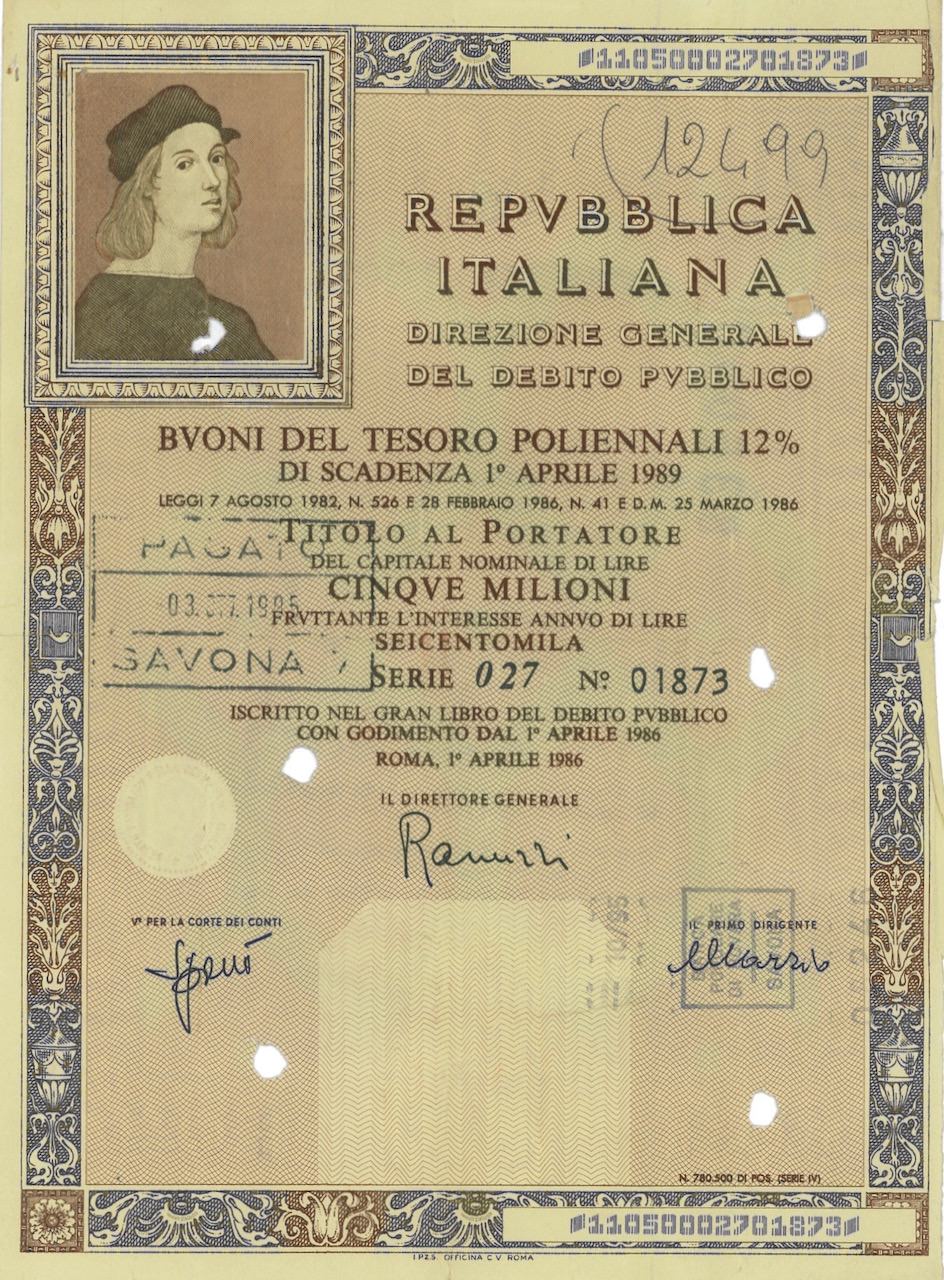 11050002701873
12499
REPVBBLICA
ITALIANA
DIREZIONE GENERALE
DEL DEBITO PVBBLICO
BVONI DEL TESORO POLIENNALI 12%
DI SCADENZA 1º APRILE 1989
LEGGI 7 AGOSTO 1982, N. 526 E 28 FEBBRAIO 1986, N. 41 E D.M. 25 MARZO 1986
TITOLO AL PORTATORE
PAGATO
DEL CAPITALE NOMINALE DI LIRE
CINQVE MILIONI
03.OTT.1995
FRVTTANTE L'INTERESSE ANNVO DI LIRE
SEICENTOMILA
SAVONA
SERIE 027 Nº 01873
ISCRITTO NEL GRAN LIBRO DEL DEBITO PVBBLICO
CON GODIMENTO DAL 1º APRILE 1986
ROMA, 1º APRILE 1986
IL DIRETTORE GENERALE
Ranuzzi
Vº PER LA CORTE DEI CONTI
IL PRIMO DIRIGENTE
N. 780.500 DI POS. (SERIE IV)
11050002701873
I.P.Z.S. OFFICINA C.V. ROMA